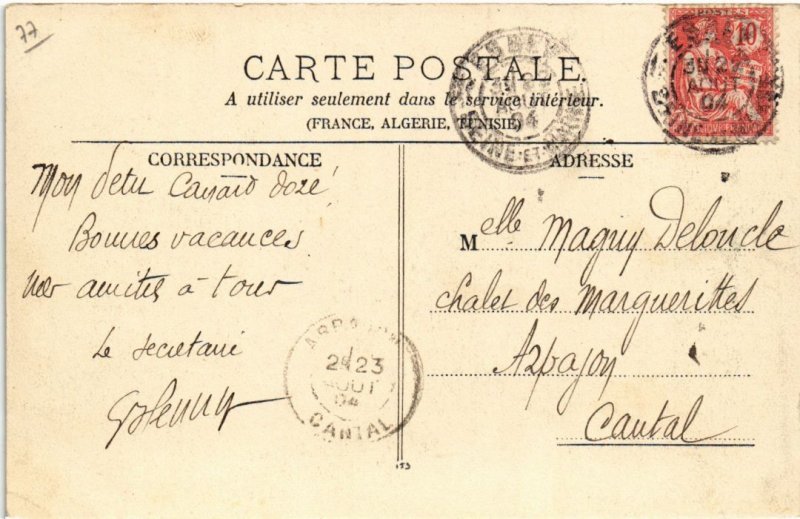 77
CARTE POSTALE.
A utiliser seulement dans le service intérieur.
(FRANCE, ALGERIE, TUNISIE)
CORRESPONDANCE
Mon petit Canard doré
Bonnes vacances
nos amitiés à tous
Le secretaire
ARPAJON
2E 23
AOUT
04
CANTAL
ADRESSE
Melle Maguy Deloncle
chalet des Marguerittes
Arpajon
Cantal
AOUT
04
SEINE-ET-MARNE
POSTES
10
AOUT
04
153